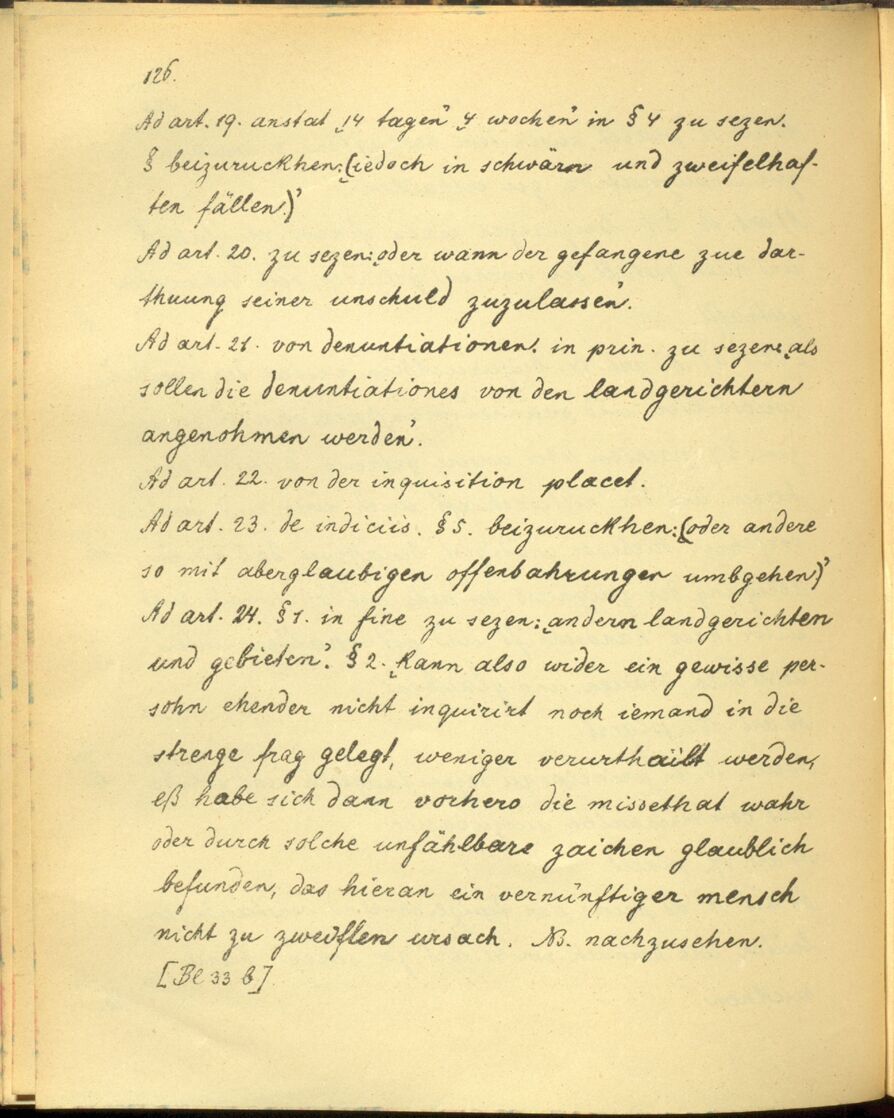 126.
Ad art. 19. anstat „14 tagen“ „4 wochen“ in § 4 zu sezen.
§ beizuruckhen: „(iedoch in schwärn und zweifelhaf-
ten fällen.)“
Ad art. 20. zu sezen: „oder wann der gefangene zue dar-
thuung seiner unschuld zuzulassen“.
Ad art. 21. von denuntiationen. in prin. zu sezen: „als
sollen die denuntiationes von den landgerichtern
angenohmen werden“.
Ad art. 22. von der inquisition placet.
Ad art. 23. de indiciis. § 5. beizuruckhen: „(oder andere
so mit aberglaubigen offenbahrungen umbgehen)“
Ad art. 24. § 1. in fine zu sezen: „andern landgerichten
und gebieten“. § 2. „kann also wider ein gewisse per-
sohn ehender nicht inquirirt noch iemand in die
strenge frag gelegt, weniger verurthailt werden,
eß habe sich dann vorhero die missethat wahr
oder durch solche unfählbare zaichen glaublich
befunden, das hieran ein vernünftiger mensch
nicht zu zweiflen ursach. NB. nachzusehen.
[Bl 33 b]